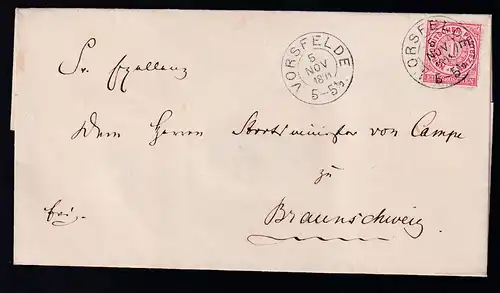 VORSFELDE
5
NOV
5-5½
VORSFELDE
5
NOV
Sr. Exzellenz
Dem Herrn Staatsminister von Campe
zu
frei.
Braunschweig